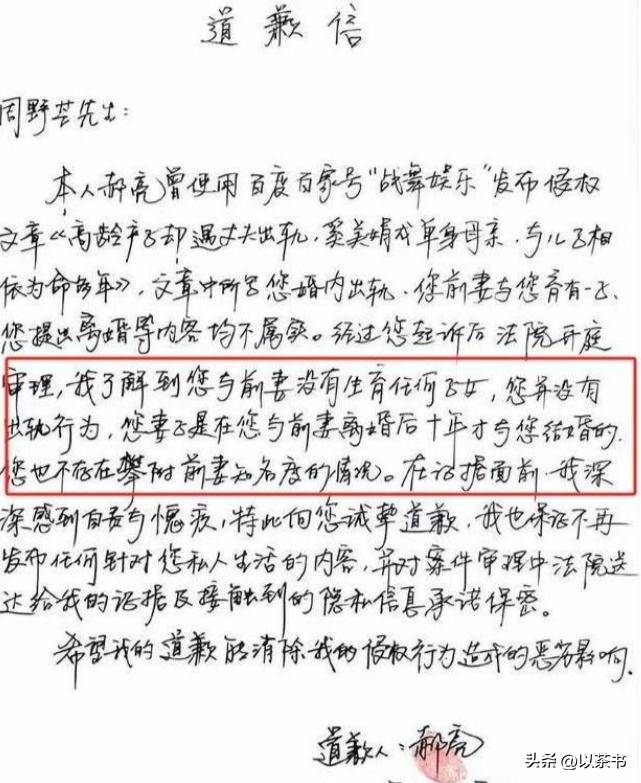 道歉信
周野芒先生：
本人郝亮曾使用百度百家号“战舞娱乐”发布侵权
文章《高龄产子却遇丈夫出轨，奚美娟成单身母亲，与儿子相
依为命多年》，文章中所写您婚内出轨、您前妻与您育有一子、
您提出离婚等内容均不属实。经过您起诉后法院开庭
审理，我了解到您与前妻没有生育任何子女，您并没有
出轨行为，您妻子是在您与前妻离婚后十年才与您结婚的，
您也不存在攀附前妻知名度的情况。在证据面前，我深
深感到自责与愧疚，特此向您诚挚道歉，我也保证不再
发布任何针对您私人生活的内容，并对案件审理中法院送
达给我的证据及接触到的隐私信息承诺保密。
希望我的道歉能消除我的侵权行为造成的恶劣影响。
道歉人：郝亮
头条 @以茶书